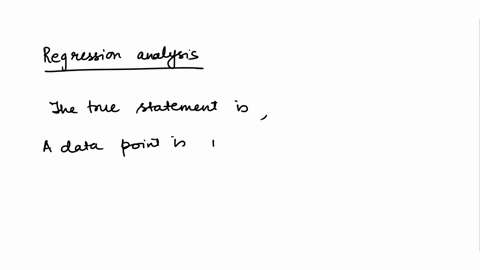 Regression analysis
The true statement is,
A data point is